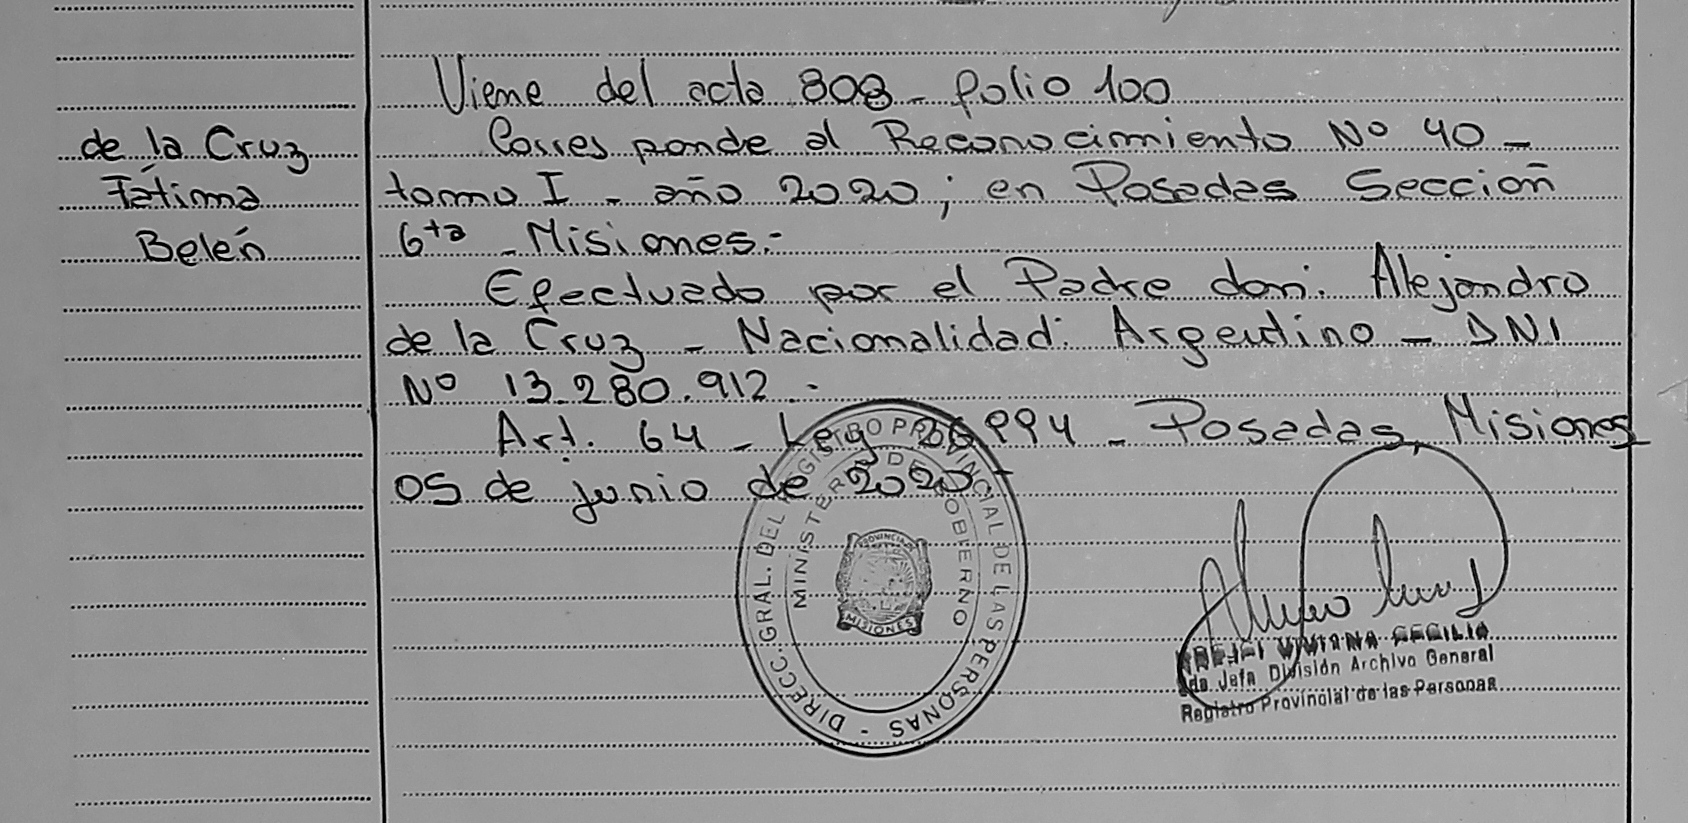 Viene del acta 808 - folio 100
de la Cruz
Fátima
Belén
Corresponde al Reconocimiento Nº 40 -
tomo I - año 2020; en Posadas Sección
6ta - Misiones.-
Efectuado por el Padre don: Alejandro
de la Cruz - Nacionalidad: Argentino - DNI
Nº 13.280.912.-
Art. 64 - Ley 26994 - Posadas, Misiones
05 de junio de 2020-
DIRECC. GRAL. DEL REGISTRO PROVINCIAL DE LAS PERSONAS -
MINISTERIO DE GOBIERNO
PROVINCIA
MISIONES
VIVIANA CECILIA
Jefa División Archivo General
Registro Provincial de las Personas